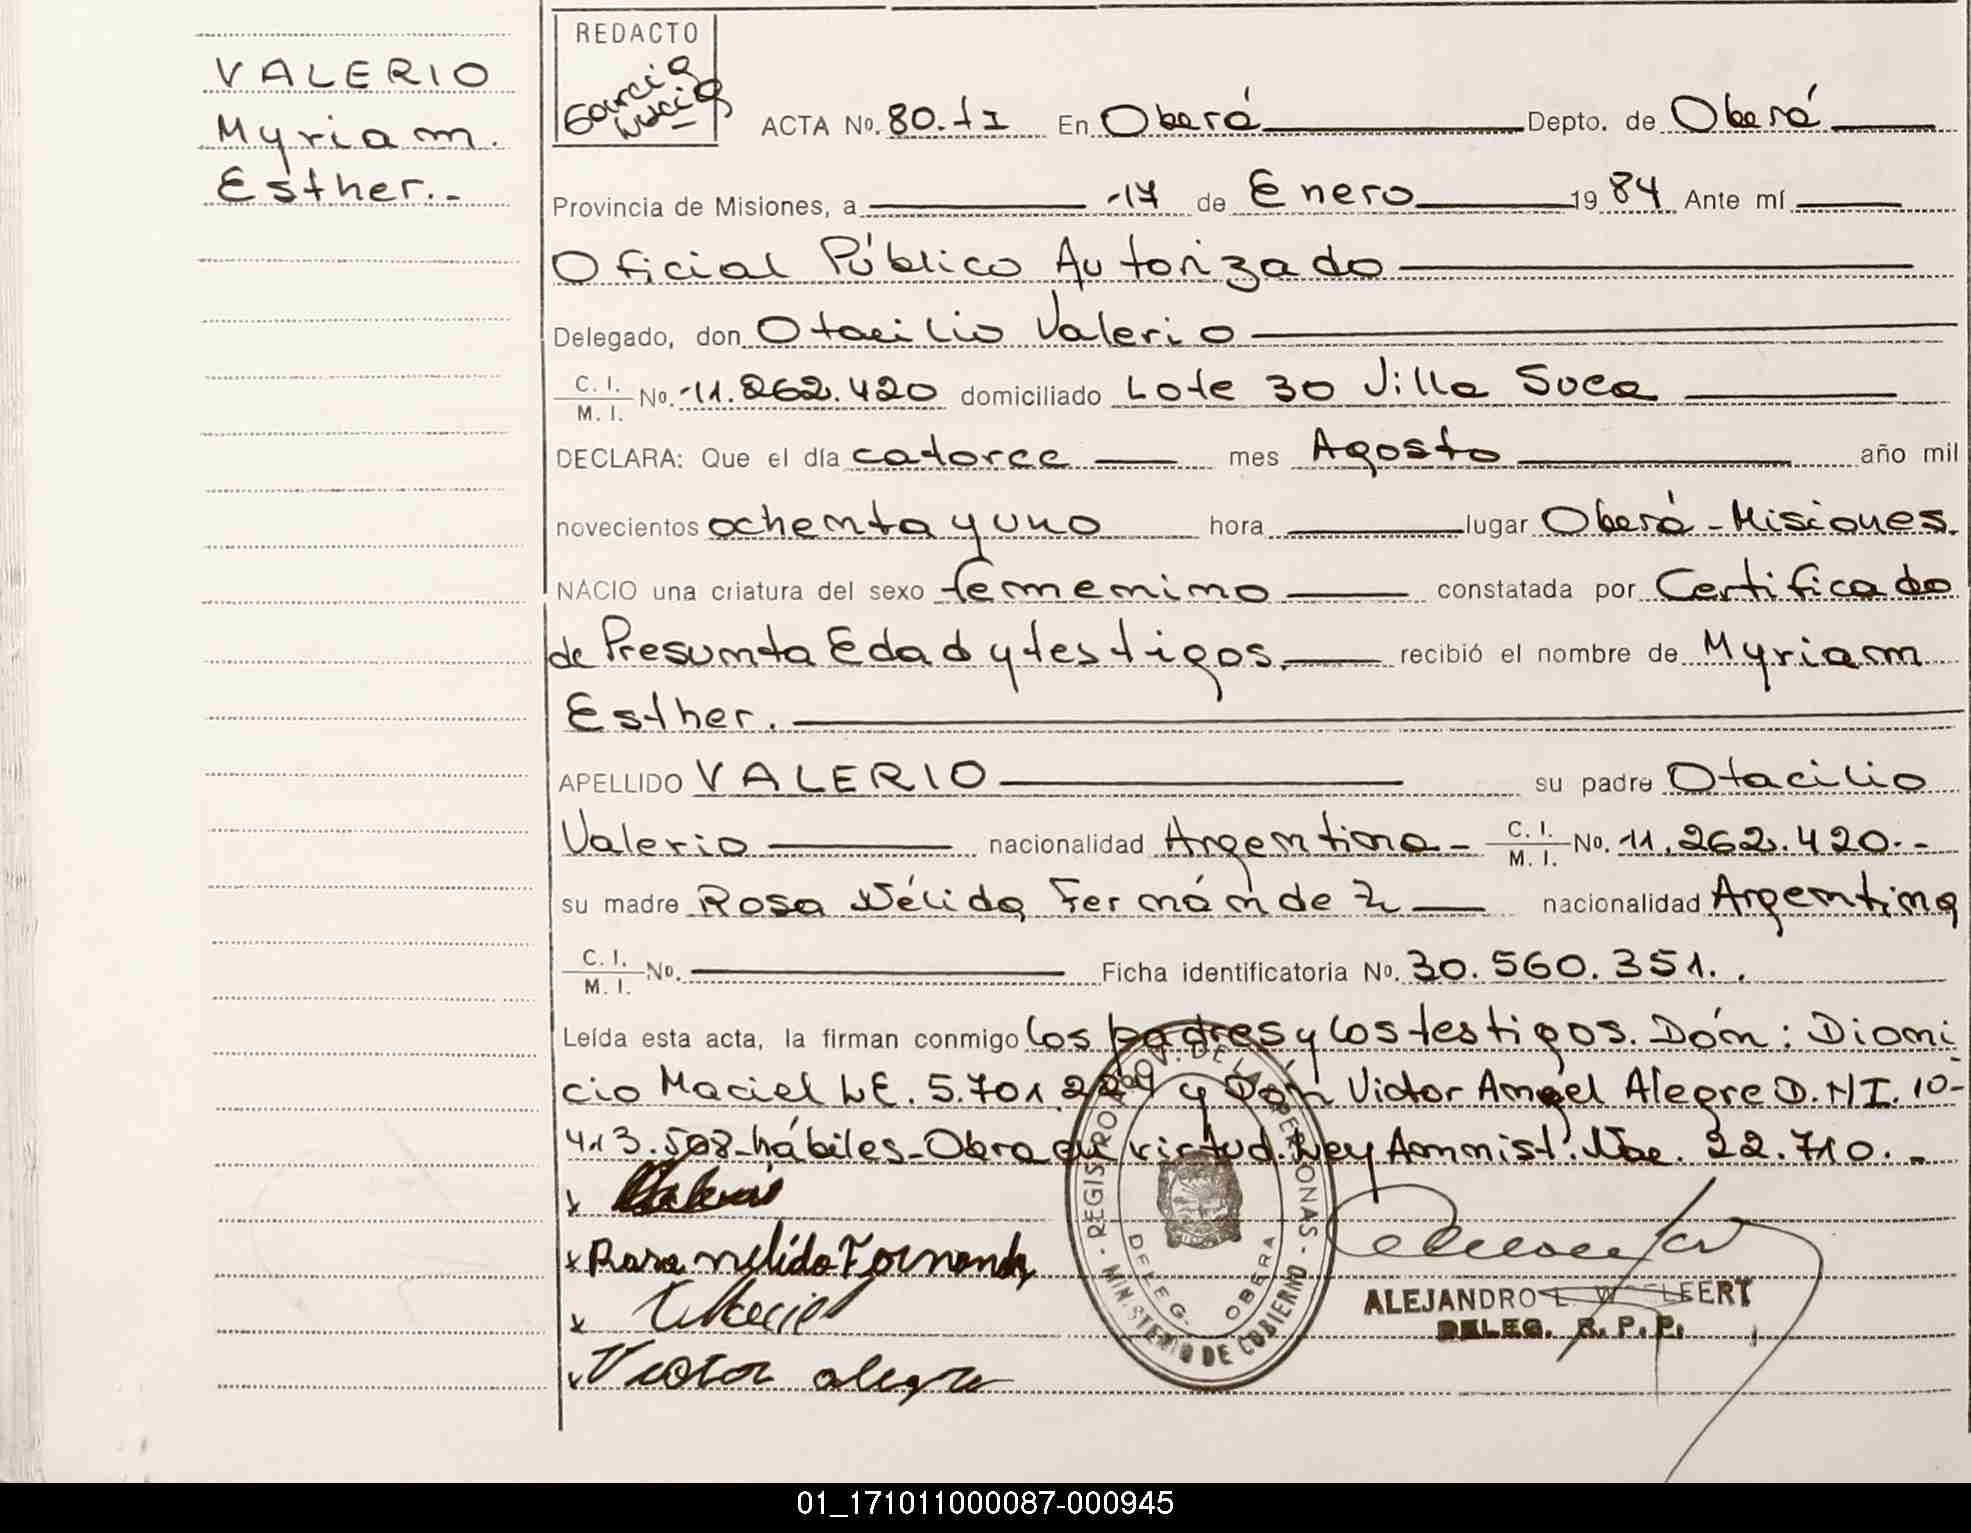 VALERIO
Myriam.
Esther.-
REDACTO
Garcia
ACTA No. 80. tI En Oberá Depto. de Oberá
Provincia de Misiones, a 17 de Enero 1984 Ante mí
Oficial Público Autorizado
Delegado, don Otacilio Valerio
C. I. / M. I. No. 11.262.420 domiciliado Lote 30 Villa Suca
DECLARA: Que el día catorce mes Agosto año mil
novecientos ochenta y uno hora lugar Oberá - Misiones.
NACIO una criatura del sexo femenino constatada por Certificado
de Presunta Edad y testigos. recibió el nombre de Myriam
Esther.
APELLIDO VALERIO su padre Otacilio
Valerio nacionalidad Argentina - C. I. / M. I. No. 11.262.420.-
su madre Rosa Nélida Fernández nacionalidad Argentina
C. I. / M. I. No. Ficha identificatoria No. 30.560.351..
Leída esta acta, la firman conmigo los padres y los testigos. Dón: Dioni-
cio Maciel LE. 5.701.229 y Dón Victor Angel Alegre D.NI. 10-
413.508-hábiles-Obra en virtud. Ley Amnist. Nac. 22.710.-
x Valerio
x Rosa nelida Fernandez
x Maciel
x Victor alegre
REGISTRO PROV. DE LAS PERSONAS - MINISTERIO DE GOBIERNO -
DELEG. OBERA
ALEJANDRO L.
DELEG. R. P. P.
01_171011000087-000945